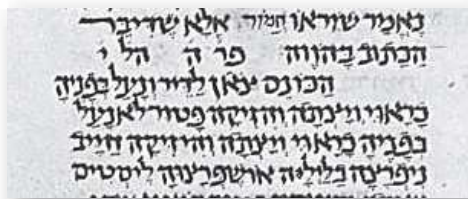 נאמר שור או חמור. אלא שדיבר
הכתוב בהווה פר ה הל י
הכונס צאן לדיר ונעל בפניה
כראוי ויצתה והזיקה פטור לא נעל
בפניה כראוי ויצתה והיזיקה חייב
ניפרצה בלילה או שפרצוה ליסטים